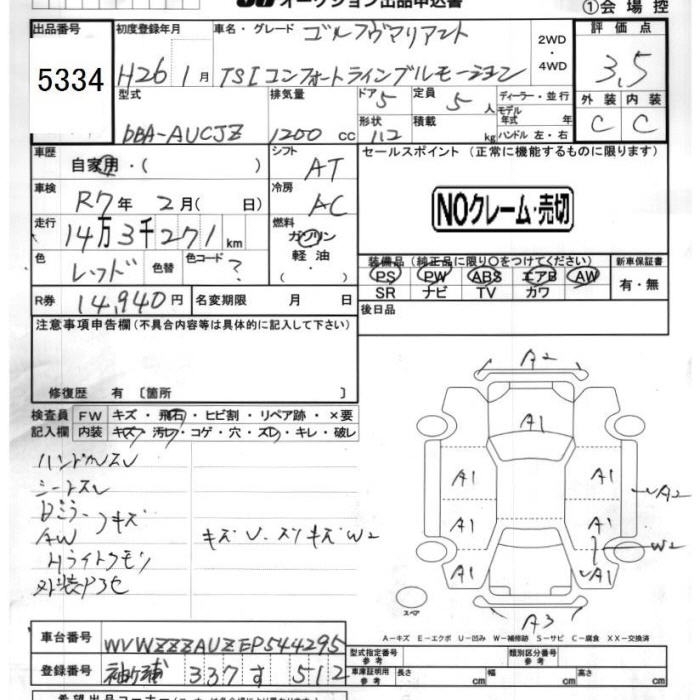 オークション出品申込書
①会場控
出品番号
5334
初度登録年月
H26 1月
車名・グレード
ゴルフヴァリアント
TSIコンフォートラインブルーモーション
2WD
・
4WD
評価点
3.5
外装 内装
C C
型式
DBA-AUCJZ
排気量
1200 cc
ドア 5
形状
定員 5人
積載 kg
ディーラー・並行
モデル年式 年
ハンドル 左・右
車歴
自家用・( )
車検
R7年 2月( 日)
走行
14万3千271km
色
レッド
色替
色コード
?
R券
14,940円
名変期限 月 日
シフト
AT
冷房
AC
燃料
ガソリン
軽油
・( )
セールスポイント (正常に機能するものに限ります)
NOクレーム・売切
装備品 (純正品に限り○をつけてください)
PS PW ABS エアB AW
SR ナビ TV カワ
新車保証書
有・無
後日品
注意事項申告欄(不具合内容等は具体的に記入して下さい)
修復歴 有 〔箇所 〕
検査員
記入欄
FW キズ・飛石・ヒビ割・リペア跡・×要
内装 キズ・汚レ・コゲ・穴・スレ・キレ・破レ
ハンドルスレ
シートスレ
AW
キズ
Hライトクモリ
キズU.スリキズW2
A2
A1
A1
A1
A1
A2
A1
A1
W2
A1
A1
A3
スペア
A-キズ E-エクボ U-凹み W-補修跡 S-サビ C-腐食 XX-交換済
車台番号
WVWZZZAUZEP544295
登録番号
袖ヶ浦 337 す 512
型式指定番号
参考
類別区分番号
参考
車庫証明用
参考
長さ cm
幅 cm
高さ cm